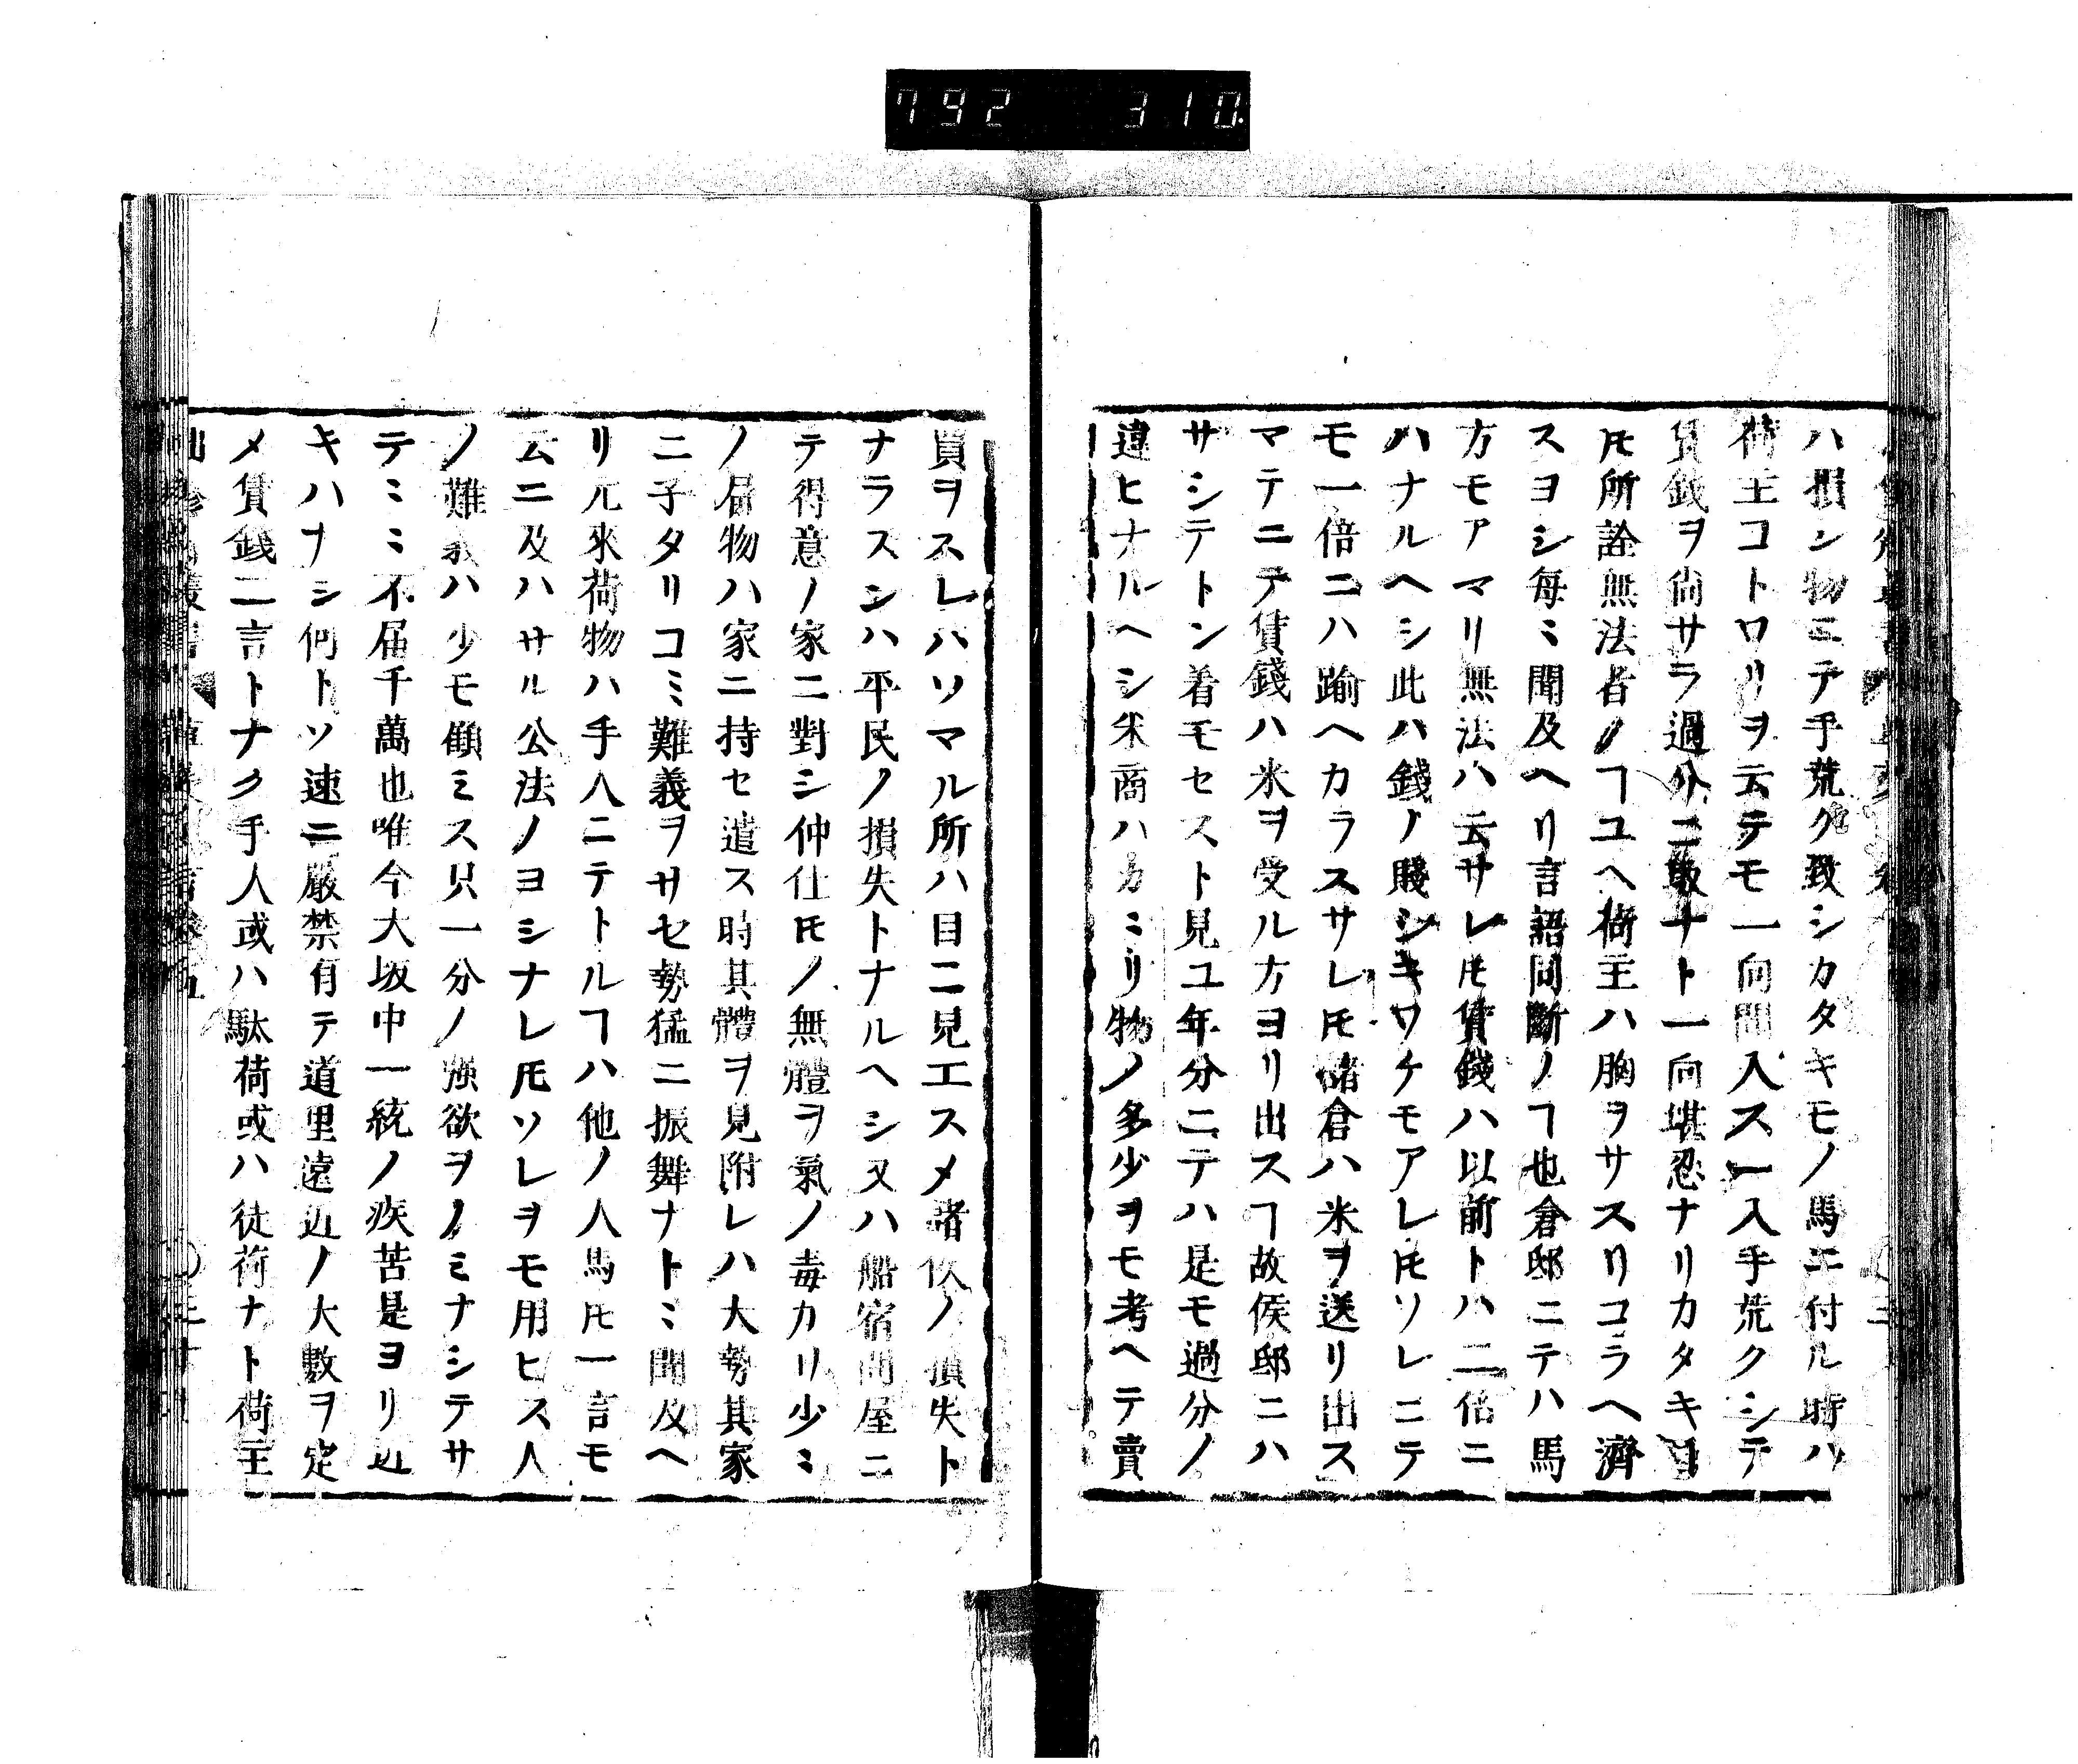 792 310
ハ損シ物ニテ手荒ク致シカタキモノ馬ニ付ル時ハ
荷主コトワリヲ云テモ一向聞入ス一入手荒クシテ
賃錢ヲ尚サラ過分ニ取ナト一向堪忍ナリカタキヿ
𪜈所詮無法者ノヿユヘ荷主ハ胸ヲサスリコラヘ濟
スヨシ毎ミ聞及ヘリ言語同斷ノヿ也倉邸ニテハ馬
方モアマリ無法ハ云サレ𪜈賃錢ハ以前トハ二倍ニ
ハナルヘシ此ハ錢ノ賤シキワケモアレ𪜈ソレニテ
モ一倍ニハ踰ヘカラスサレ𪜈諸倉ハ米ヲ送リ出ス
マテニテ賃錢ハ米ヲ受ル方ヨリ出スヿ故侯邸ニハ
サシテトン着モセスト見ユ年分ニテハ是モ過分ノ
違ヒナルヘシ米商ハカミリ物ノ多少ヲモ考ヘテ賣
買ヲスレハソマル所ハ目ニ見エスメ諸侯ノ損失ト
ナラスンハ平民ノ損失トナルヘシ又ハ船宿問屋ニ
テ得意ノ家ニ對シ仲仕𪜈ノ無體ヲ氣ノ毒カリ少ミ
ノ届物ハ家ニ持セ遣ス時其體ヲ見附レハ大勢其家
ニ子タリコミ難義ヲサセ勢猛ニ振舞ナトミ聞及ヘ
リ元來荷物ハ手人ニテトルヿハ他ノ人馬𪜈一言モ
云ニ及ハサル公法ノヨシナレ𪜈ソレヲモ用ヒス人
ノ難義ハ少モ顧ミス只一分ノ強欲ヲノミナシテサ
テミミ不届千萬也唯今大坂中一統ノ疾苦是ヨリ近
キハナシ何トソ速ニ嚴禁有テ道里遠近ノ大數ヲ定
メ賃錢二言トナク手人或ハ駄荷或ハ徒荷ナト荷主